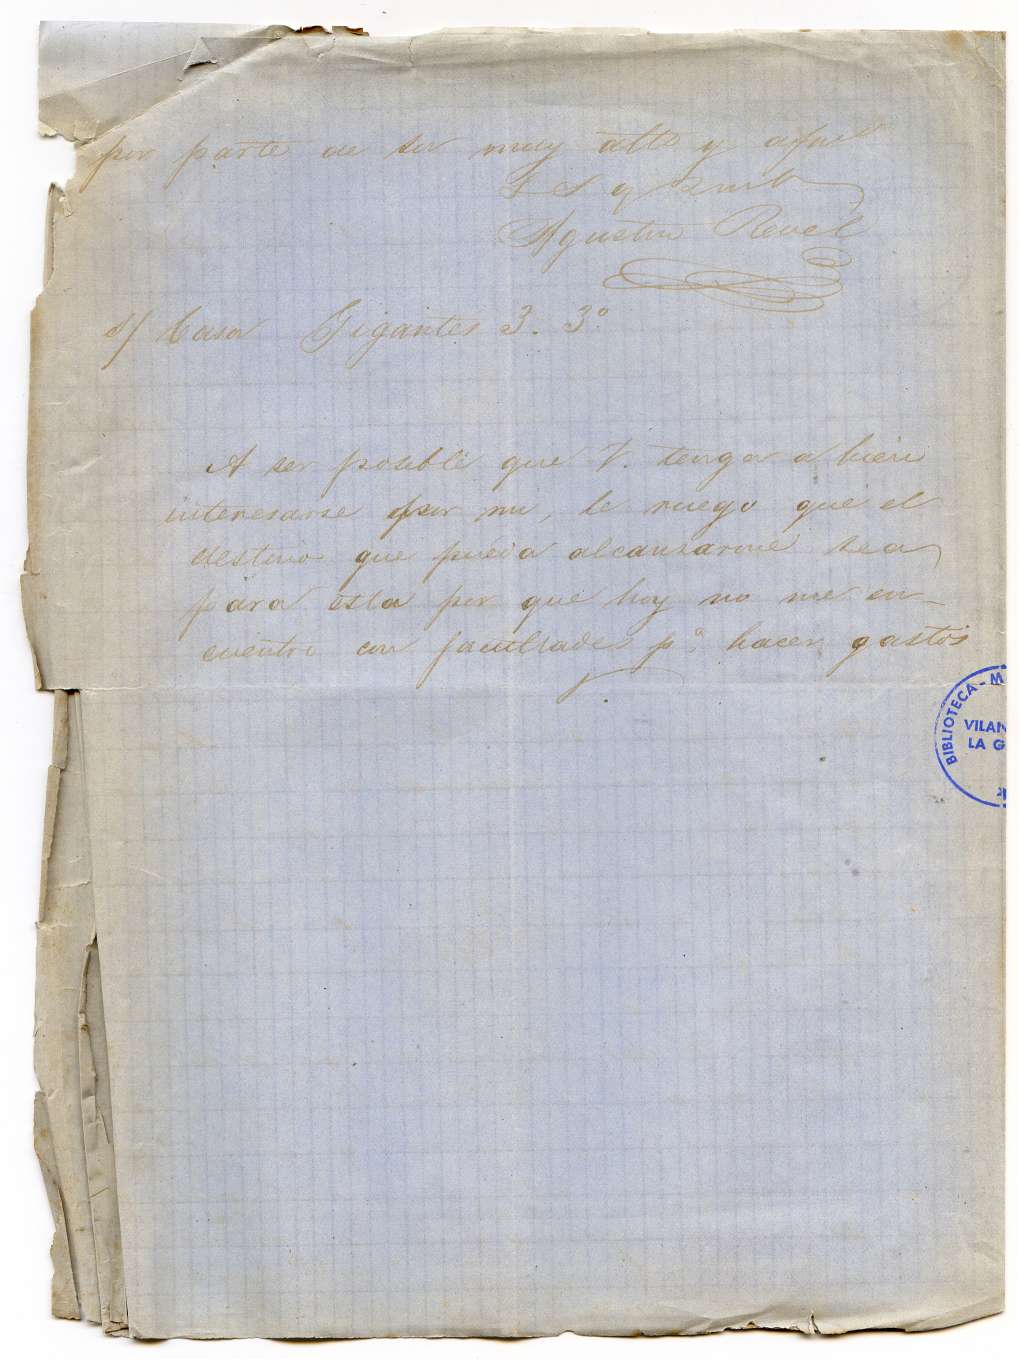 por parte de ser muy atto y afmo
S S q b s m
Agustin Revel
s/ Casa Gigantes 3. 3º
A ser posible que V. tenga a bien
interesarse por mi, le ruego que el
destino que pueda alcanzarme sea
para esta por que hoy no me en_
cuentro con facultades pª hacer gastos
BIBLIOTECA - M
VILAN
LA G